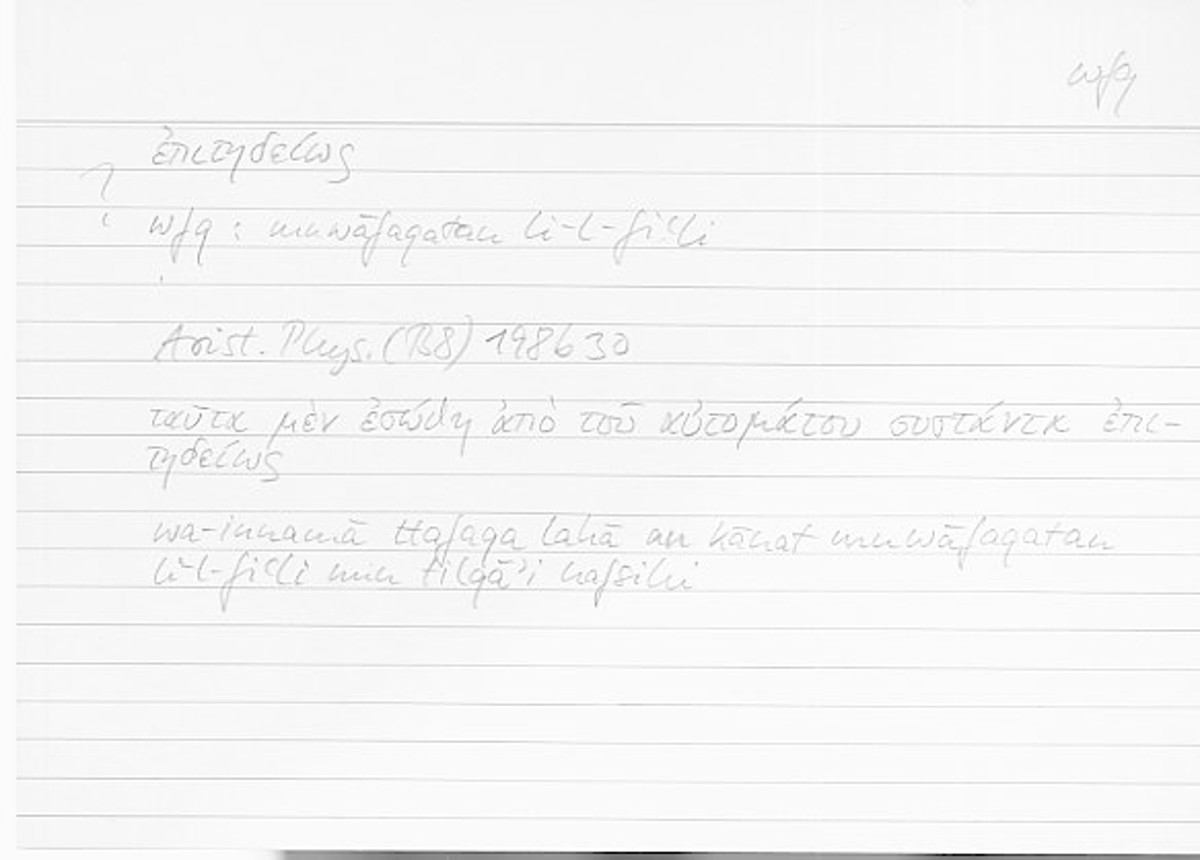 wfq
ἐπιτηδείως
wfq : muwāfaqatan li-l-fiʿli
Arist. Phys. (B8) 198b30
ταῦτα μὲν ἐσώθη ἀπὸ τοῦ αὐτομάτου συστάντα ἐπι-
τηδείως
wa-innamā ttafaqa lahā an kānat muwāfaqatan
li-l-fiʿli min tilqāʾi nafsihi